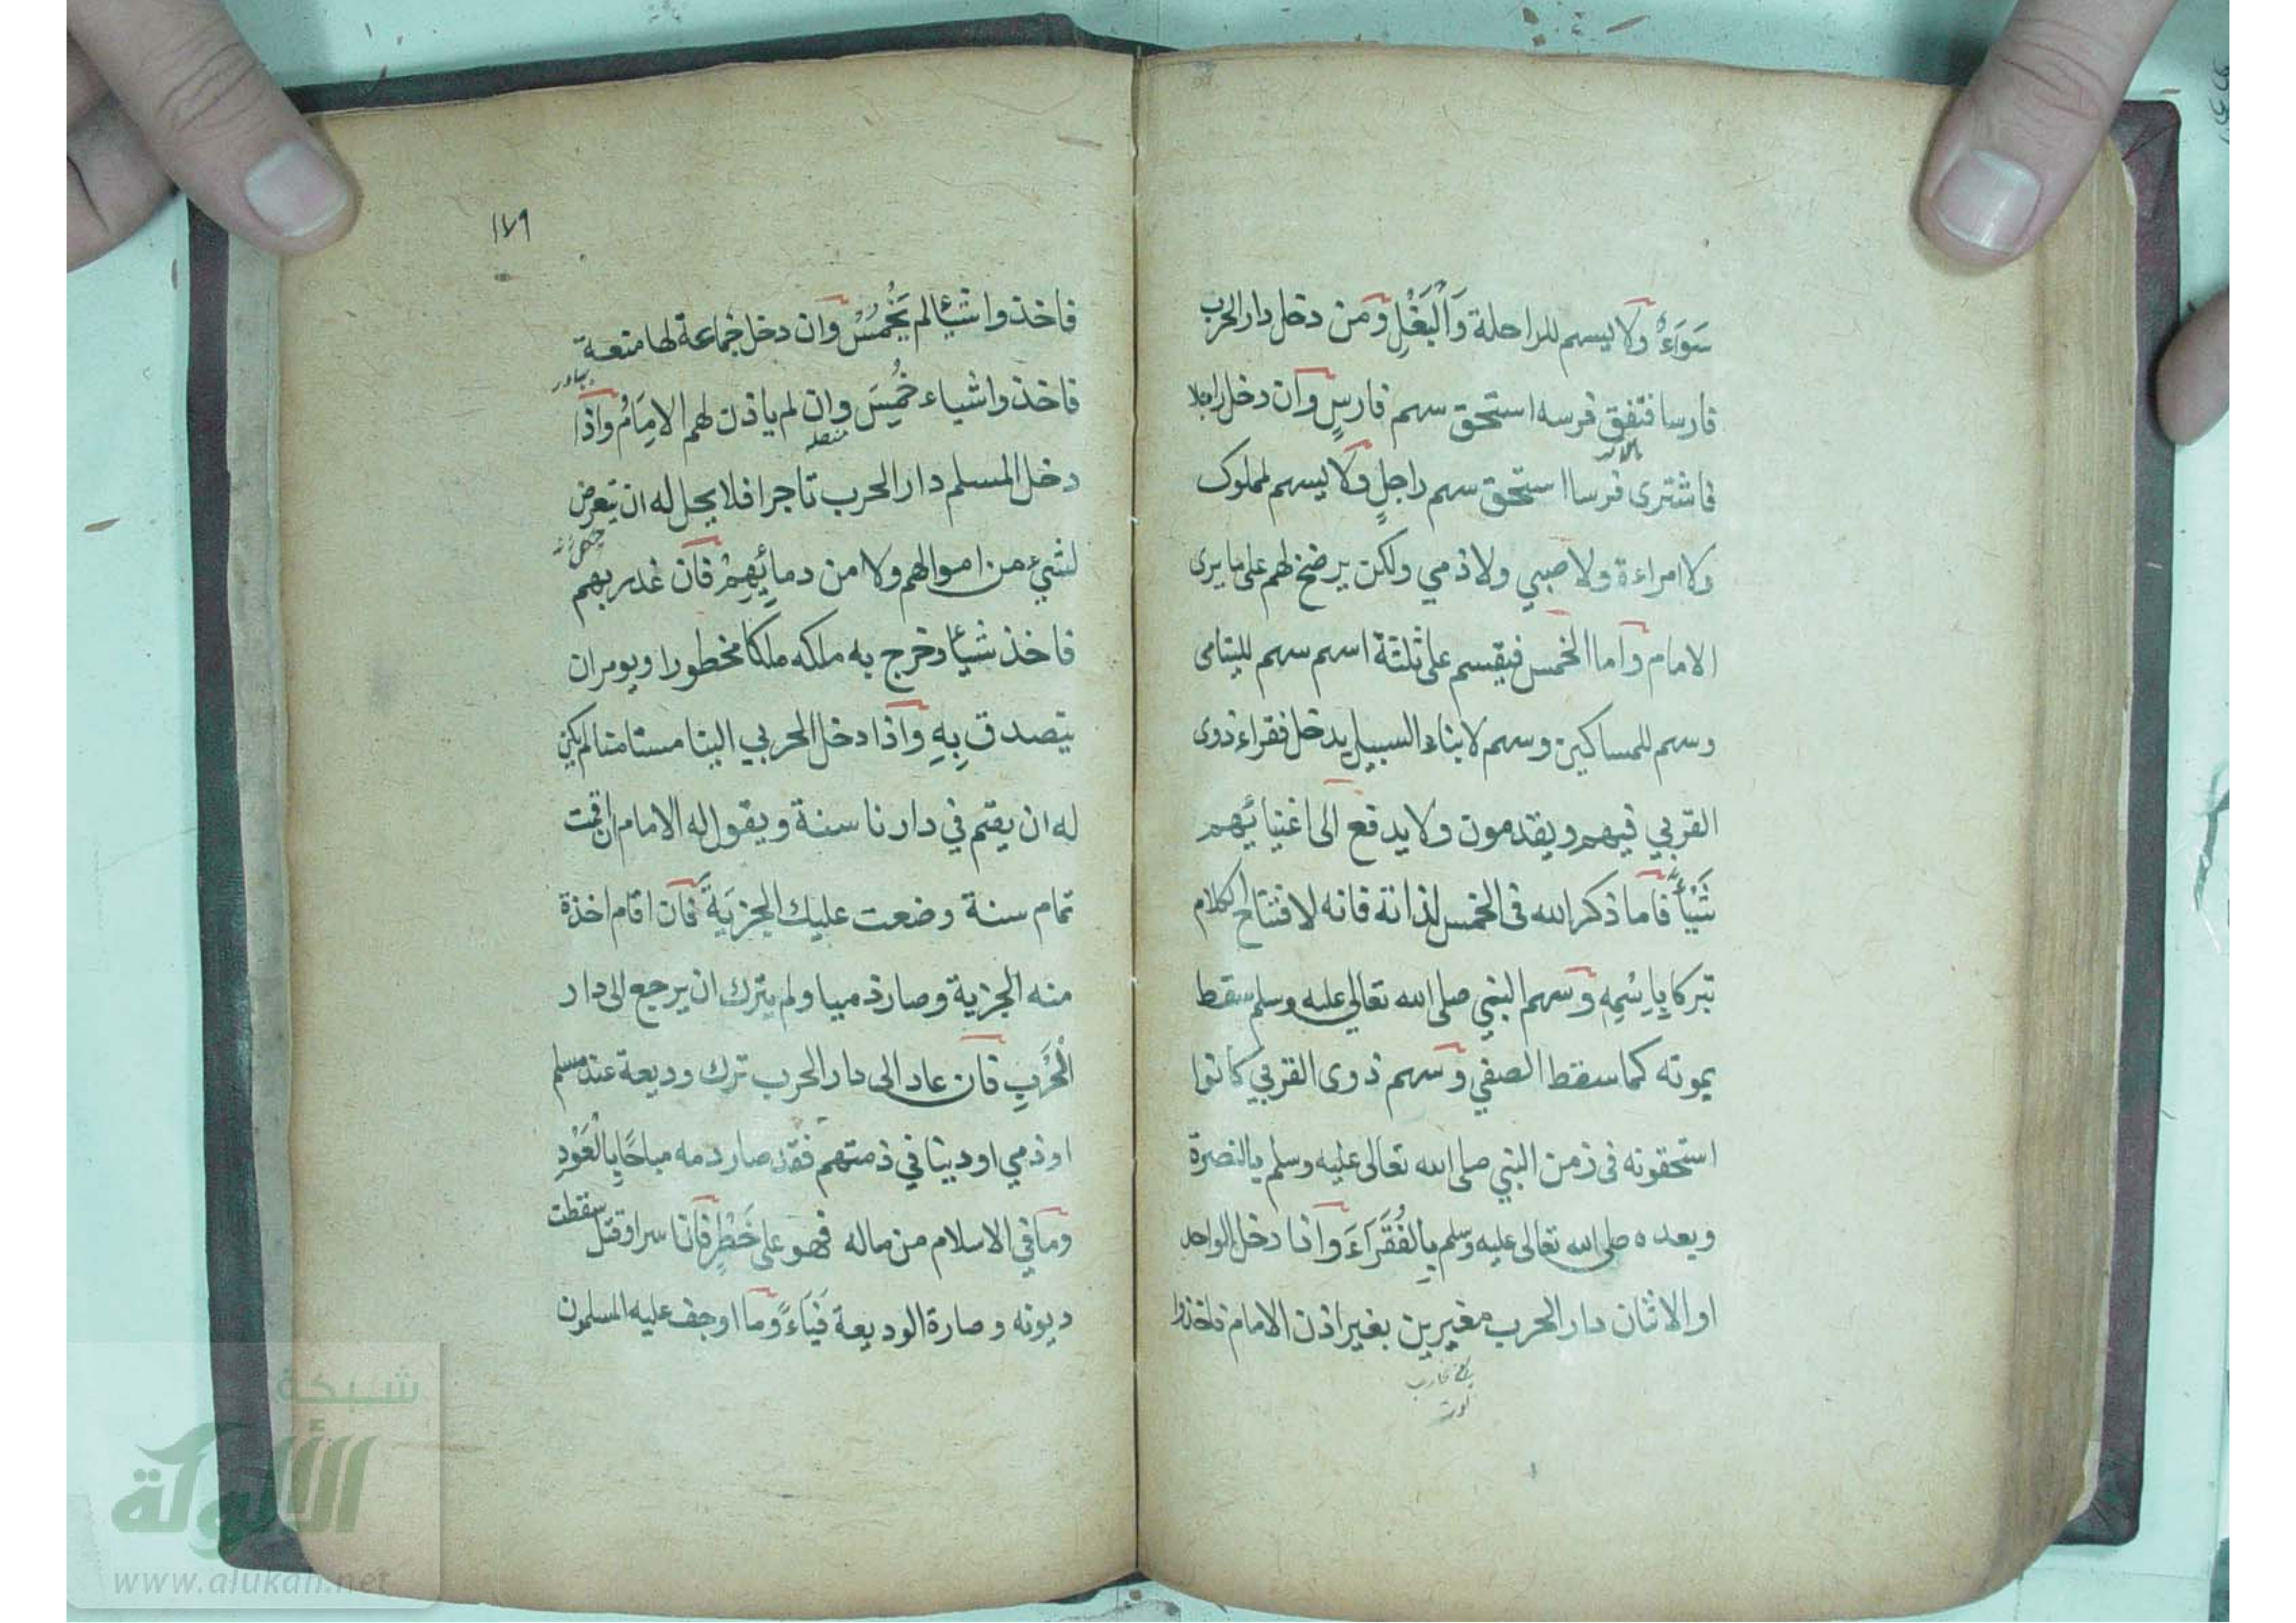 سَوَاءٌ ولا يسهم للراحلة وَالْبَغْلِ ومن دخل دار الحرب
فارسا فنفق فرسه استحق سهم فارسٍ وان دخل راجلا
فاشترى فرسا استحق سهم راجلٍ ولا يسهم لمملوك
ولا امراءة ولا صبي ولا ذمي ولكن يرضخ لهم على ما يرى
الامام واما الخمس فيقسم على ثلثة اسهم سهم لليتامى
وسهم للمساكين وسهم لابناء السبيل يدخل فقراء ذوى
القربي فيهم ويقدمون ولا يدفع الى اغنيائهم
شَيْأً فاما ذكر الله فى الخمس لذاته فانه لافتتاح الكلام
تبركا بِاِسْمِهِ وسهم النبي صلى الله تعالى عليه وسلم سقط
بموته كما سقط الصفي وسهم ذوى القربي كانوا
استحقونه فى زمن النبي صلى الله تعالى عليه وسلم بالنصرة
وبعده صلى الله تعالى عليه وسلم بِالفُقَرَاءَ واذا دخل الواحد
او الاثنان دار الحرب مغيرين بغير اذن الامام فاخذوا
١٧٩
فاخذوا شيئا لم يُخْمَسْ وان دخل جماعة لها منعة
فاخذوا اشياء خُمِسَ وان لم ياذن لهم الامَامُ واذا
دخل المسلم دار الحرب تاجرا فلا يحل له ان يتعرض
لشيء من اموالهم ولا من دمائِهِمْ فان غدر بهم
فاخذ شيئا وخرج به ملكه ملكا محظورا ويومر ان
يتصدق بِهِ واذا دخل الحربي الينا مستامنا لم يكن
له ان يقيم في دارنا سنة ويقول له الامام ان اقمت
تمام سنة وضعت عليك الجزيَةَ فان اقام اخذة
منه الجزية وصار ذميا ولم يترك ان يرجع الى دار
الْحَرْبِ فان عاد الى دار الحرب ترك وديعة عند مسلم
او ذمي او دينا في ذمتهم فقد صار دمه مباحًا بِالْعَوْدِ
وما في الاسلام من ماله فهو على خَطْرٍ فانا سر او قتل سقطت
ديونه وصارة الوديعة فَيَاءً وما اوجف عليه المسلمون
شبكة
الألوكة
www.alukah.net